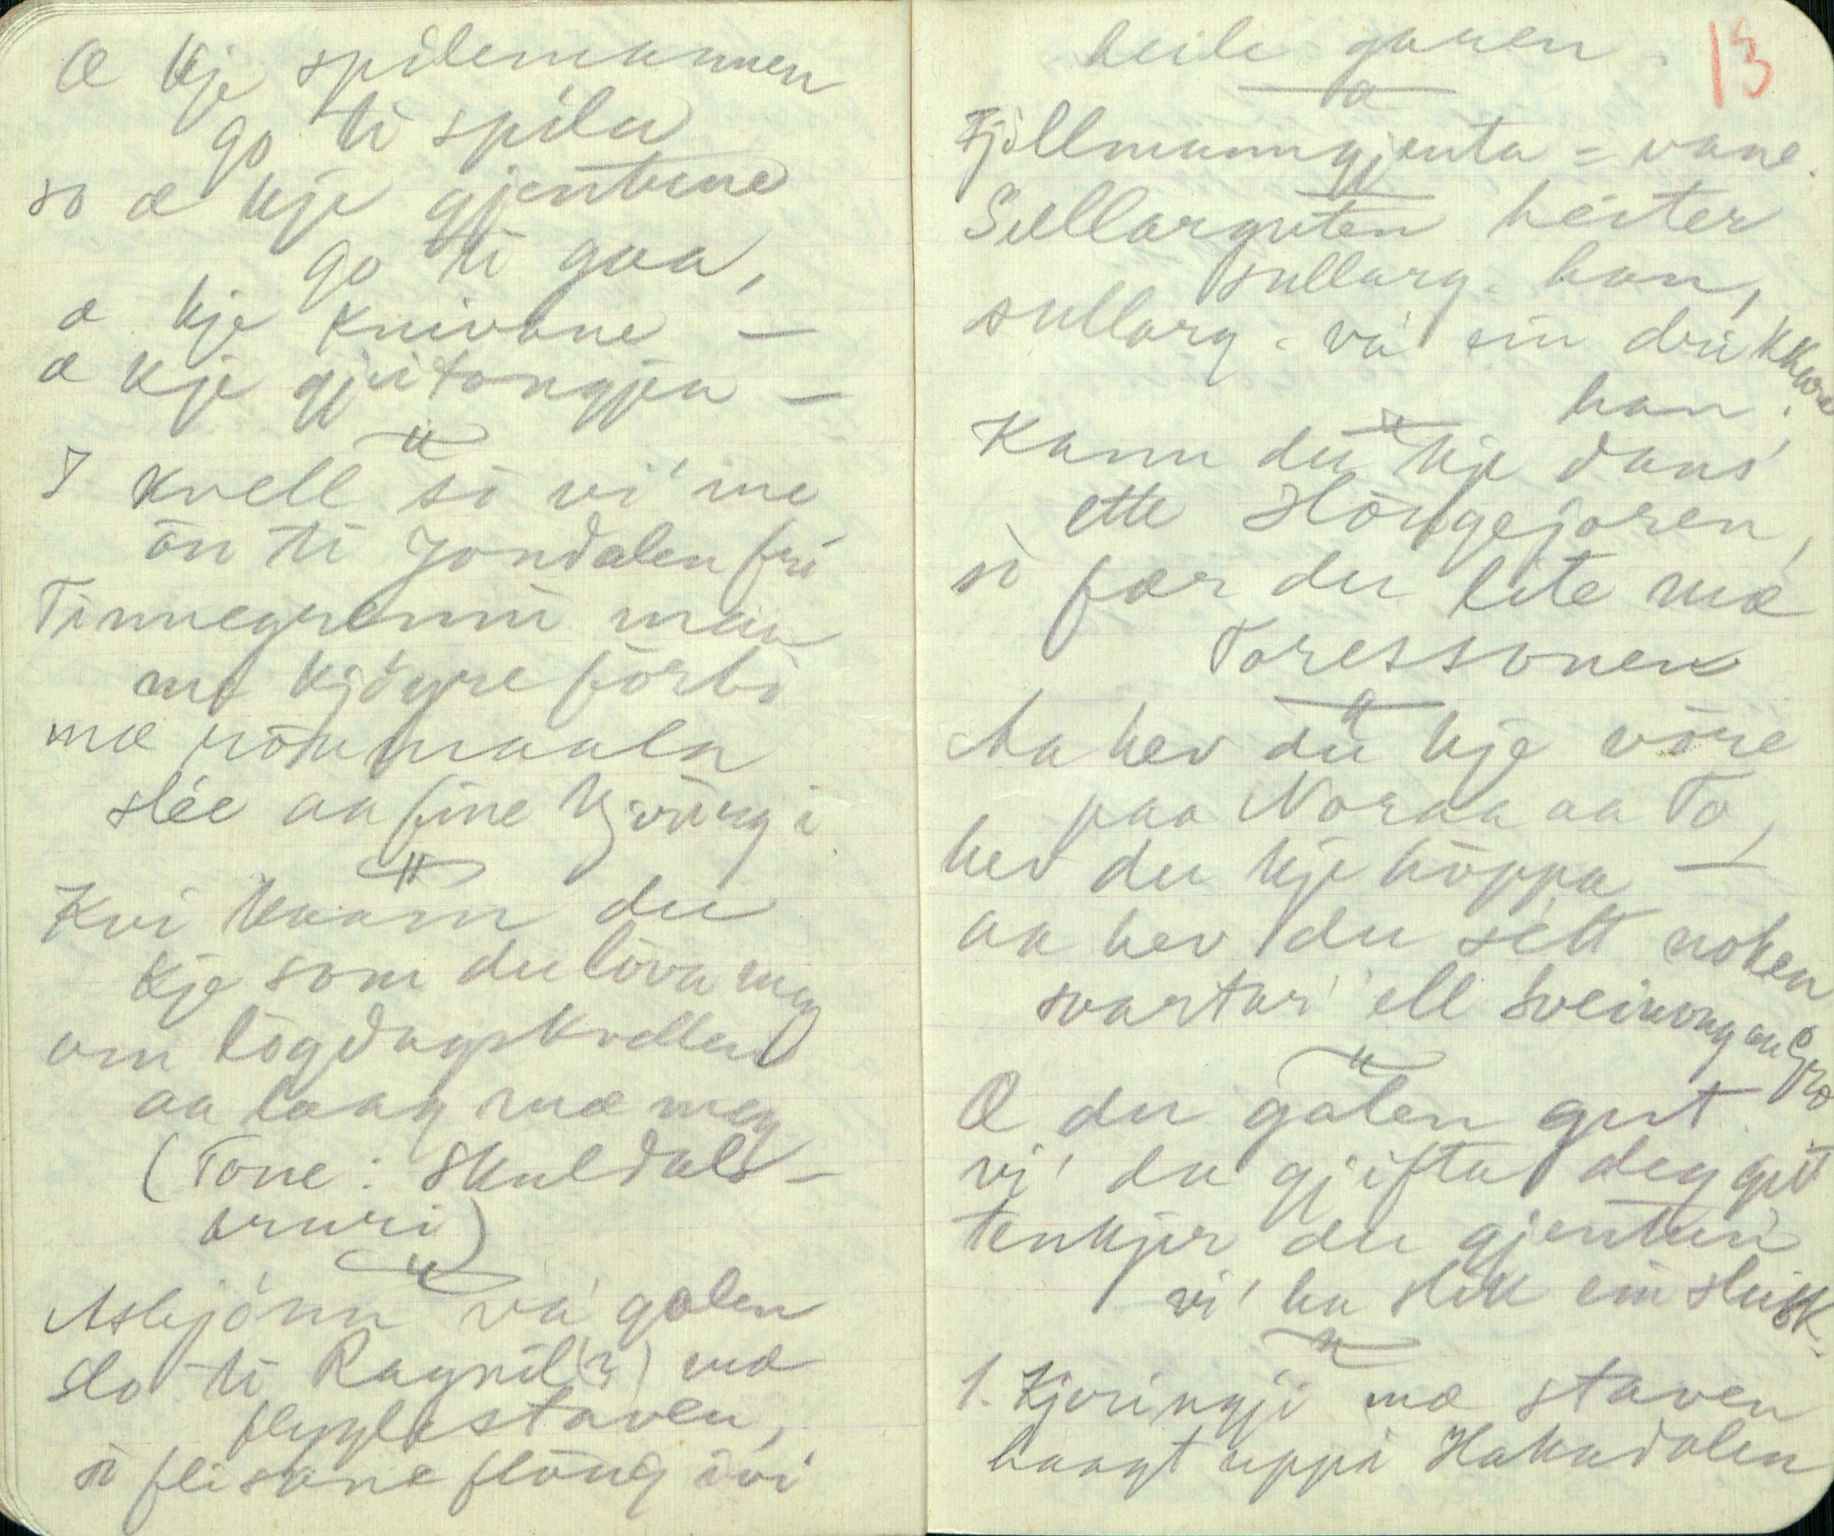 Æ kje spilemannen
go ti spila
so æ kje gjentune
go ti gaa,
æ kje knivane —
æ kje gjeitongjen —
I kvell so vi' me
ôn ti Jondalen fri
Tinnegrenni maa
me kjøyre forbi
mæ rôumaala
slée aa fine kjæringi.
Kvi kaam du
kje som du lôva meg
om lôgdagskvellen
aa laag mæ meg
(Tone: Skuldals-
bruri)
Asbjônn va' galen
slo ti Ragnil(?) mæ
flygjlestaven,
so flisane flôug ivi
heile garen.
13
Fjellmanngjenta = vane.
Sullarguten heiter
sullarg. han,
sullarg. va' ein drikkkare
han.
Kann du kje dans'
ette Hôugejoren,
so fær du lite mæ
Toressonen
Aa hev du kje vôre
paa Noraa aa To,
hev du kje hôppa —
aa hev du sétt noken
svartar' ell Sveinong aa Gro
Æ du galen gut
vi' du gjifta deg gut
tenkjer du gjentun
vi' ha slik ein slusk.
1. Kjæringji mæ staven
haagt uppi Hakadalen